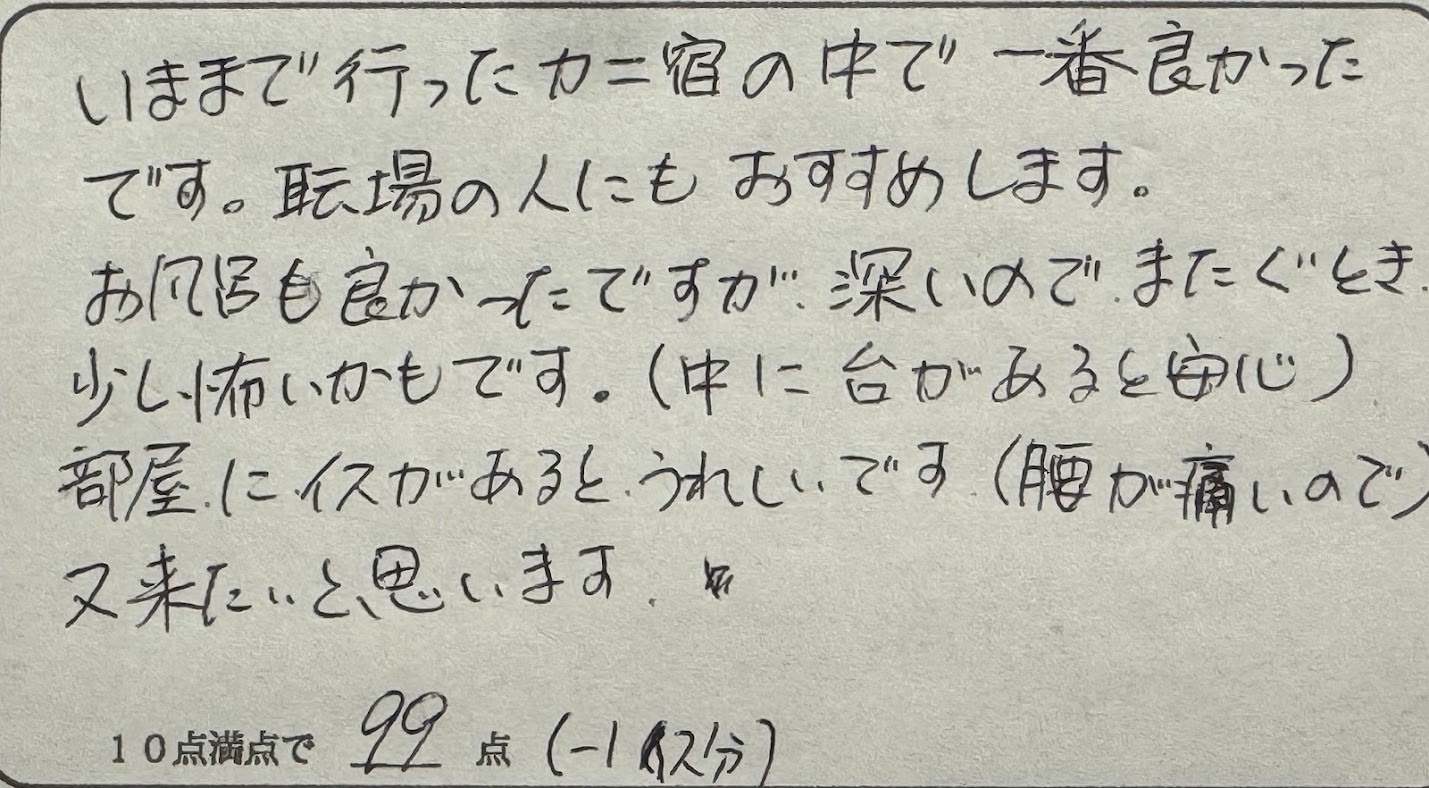 いままで行ったカニ宿の中で一番良かった
です。職場の人にもおすすめします。
お風呂も良かったですが、深いので、またぐとき、
少し怖いかもです。(中に台があると安心)
部屋に、イスがあると、うれしいです。(腰が痛いので)
又来たいと思います。
10点満点で 99 点 (-1 イス分)